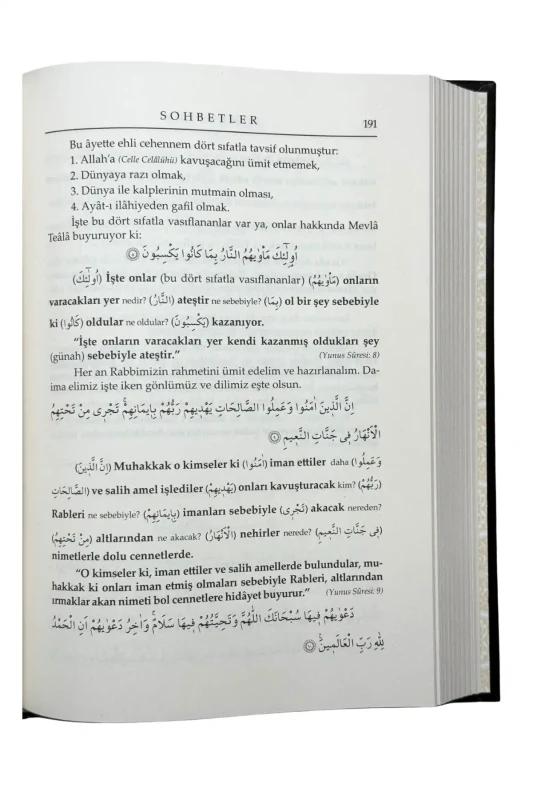 SOHBETLER 191
Bu âyette ehli cehennem dört sıfatla tavsif olunmuştur:
1. Allah'a (Celle Celâlühü) kavuşacağını ümit etmemek,
2. Dünyaya razı olmak,
3. Dünya ile kalplerinin mutmain olması,
4. Ayât-ı ilâhiyeden gafil olmak.
İşte bu dört sıfatla vasıflananlar var ya, onlar hakkında Mevlâ
Teâlâ buyuruyor ki:
اُو۬لٰٓئِكَ مَأْوٰيهُمُ النَّارُ بِمَا كَانُوا يَكْسِبُونَ ﴿٨﴾
(اُولٰٓئِكَ) İşte onlar (bu dört sıfatla vasıflananlar) (مَأْوٰيهُمُ) onların
varacakları yer nedir? (النَّارُ) ateştir ne sebebiyle? (بِمَا) ol bir şey sebebiyle
ki (كَانُوا) oldular ne oldular? (يَكْسِبُونَ) kazanıyor.
"İşte onların varacakları yer kendi kazanmış oldukları şey
(günah) sebebiyle ateştir." (Yunus Sûresi: 8)
Her an Rabbimizin rahmetini ümit edelim ve hazırlanalım. Da-
ima elimiz işte iken gönlümüz ve dilimiz eşte olsun.
اِنَّ الَّذِينَ اٰمَنُوا وَعَمِلُوا الصَّالِحَاتِ يَهْدِيهِمْ رَبُّهُمْ بِاِيمَانِهِمْ تَجْرِى مِنْ تَحْتِهِمُ
الْاَنْهَارُ فِى جَنَّاتِ النَّعِيمِ ﴿٩﴾
(اِنَّ الَّذِينَ) Muhakkak o kimseler ki (اٰمَنُوا) iman ettiler daha (وَعَمِلُوا
الصَّالِحَاتِ) ve salih amel işlediler (يَهْدِيهِمْ) onları kavuşturacak kim? (رَبُّهُمْ)
Rableri ne sebebiyle? (بِاِيمَانِهِمْ) imanları sebebiyle (تَجْرِى) akacak nereden?
(مِنْ تَحْتِهِمُ) altlarından ne akacak? (الْاَنْهَارُ) nehirler nerede? (فِى جَنَّاتِ النَّعِيمِ)
nimetlerle dolu cennetlerde.
"O kimseler ki, iman ettiler ve salih amellerde bulundular, mu-
hakkak ki onları iman etmiş olmaları sebebiyle Rableri, altlarından
ırmaklar akan nimeti bol cennetlere hidâyet buyurur." (Yunus Sûresi: 9)
دَعْوٰيهُمْ فِيهَا سُبْحَانَكَ اللّٰهُمَّ وَتَحِيَّتُهُمْ فِيهَا سَلَامٌ وَاٰخِرُ دَعْوٰيهُمْ اَنِ الْحَمْدُ
لِلّٰهِ رَبِّ الْعَالَمِينَ ﴿١٠﴾